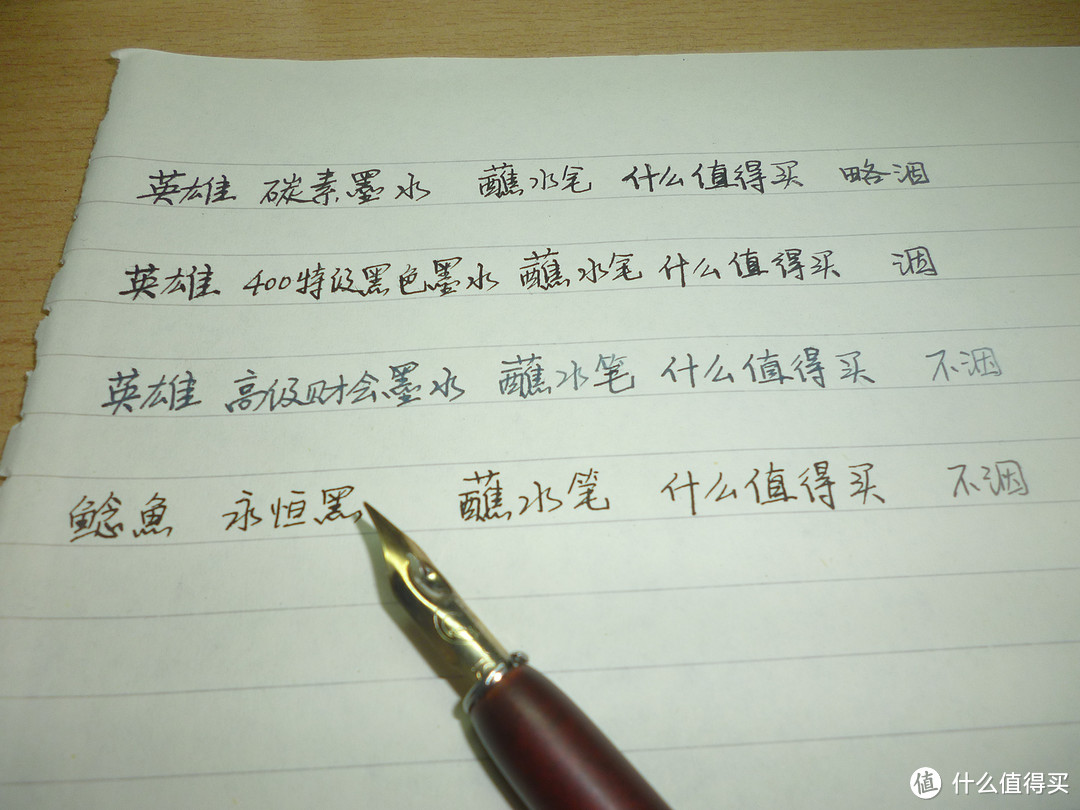 英雄 碳素墨水 蘸水笔 什么值得买 略洇
英雄 400特级黑色墨水 蘸水笔 什么值得买 洇
英雄 高级财会墨水 蘸水笔 什么值得买 不洇
鲶魚 永恒黑 蘸水笔 什么值得买 不洇
值 什么值得买